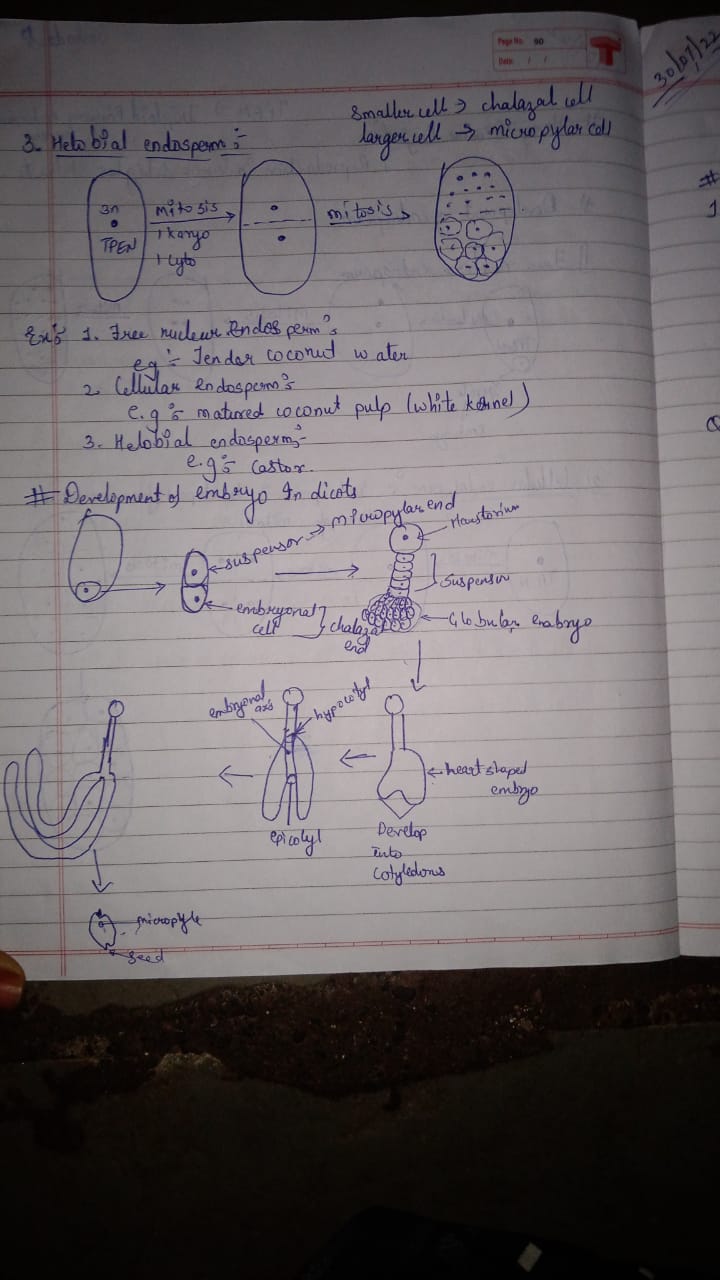 Page No. 90
Date: / /
30/07/22
Smaller cell → chalazal cell
larger cell → micropylar cell
3. Helobial endosperm :-
3n
TPEN
mitosis
1 karyo
1 cyto
mitosis
Ex :- 1. Free nuclear Endosperm :-
eg :- Tendar coconut water
2. Cellular endosperm :-
e.g :- matured coconut pulp (white kernel)
3. Helobial endosperm :-
e.g :- Castor.
# Development of embryo In dicots
suspensor → micropylar end
Haustorium
Suspensor
embryonal cell } chalazal end
Globular embryo
embryonal axis
hypocotyl
heart shaped embryo
epicotyl
Develop
into
Cotyledons
micropyle
seed
#
1